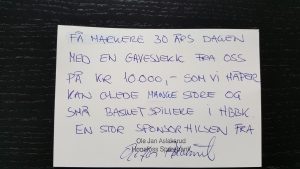 FÅ MARKERE 30 ÅRS DAGEN
MED EN GAVESJEKK FRA OSS
PÅ KR 10.000,- SOM VI HÅPER
KAN GLEDE MANGE STORE OG
SMÅ BASKETSPILLERE I HBBK
EN STOR SPONSORHILSEN FRA
Ole Jan
Hønefoss Sparebank